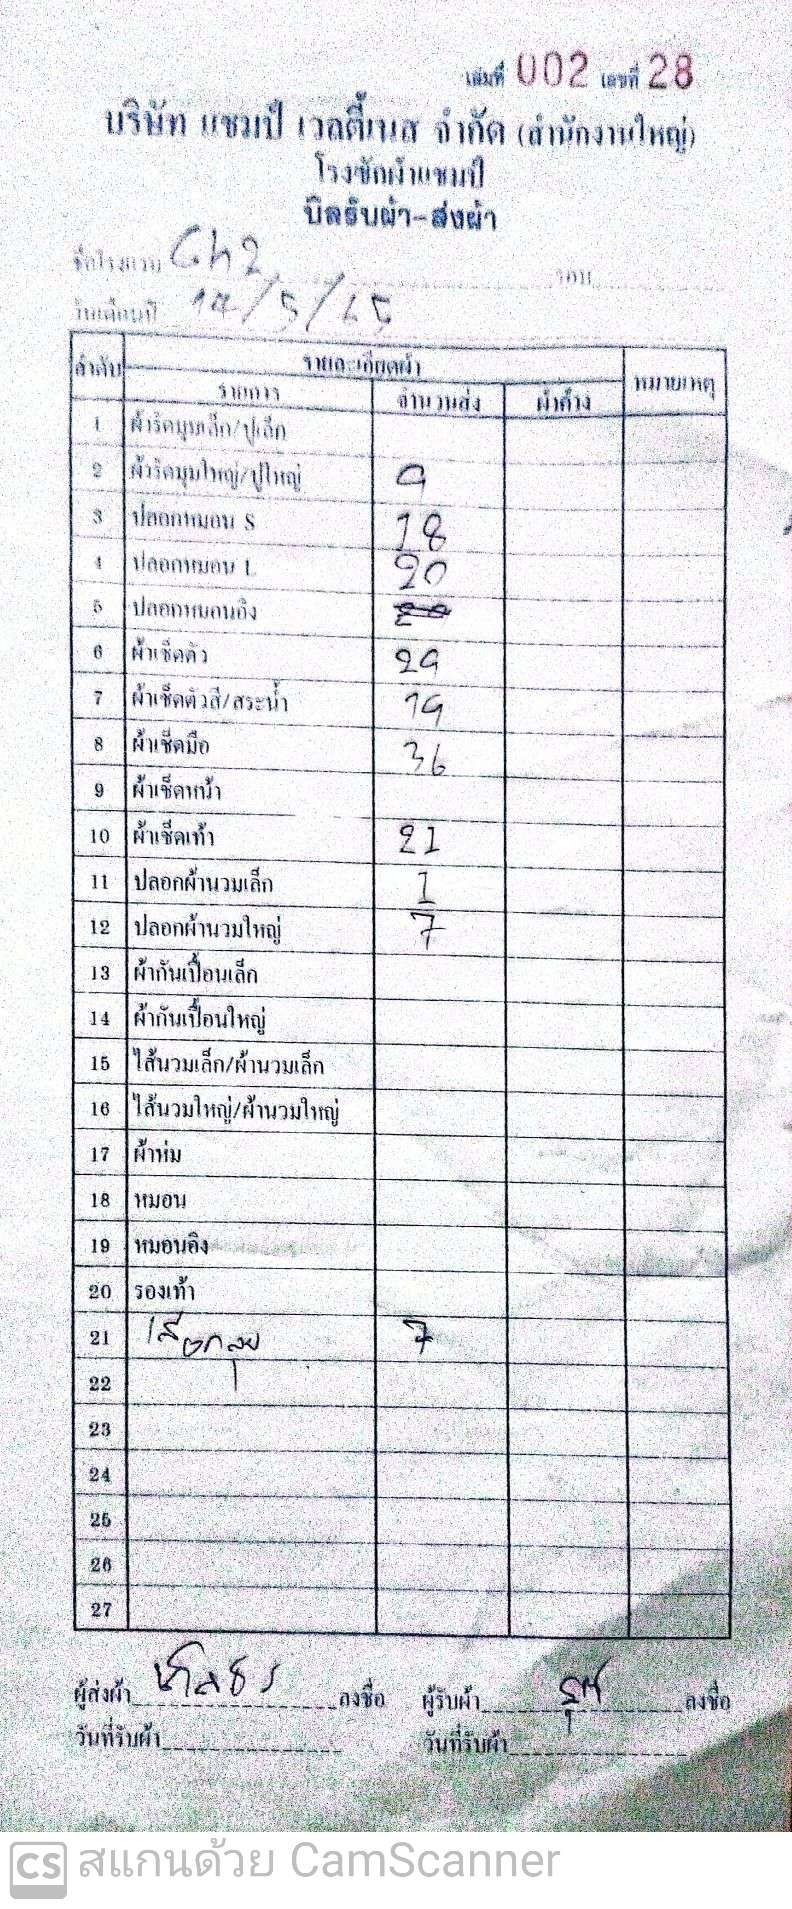 เล่มที่ 002 เลขที่ 28
บริษัท แชมป์ เวลตี้เนส จำกัด (สำนักงานใหญ่)
โรงซักผ้าแชมป์
บิลรับผ้า-ส่งผ้า
ชื่อโรงแรม Ch2 รอบ
วันเดือนปี 14/5/65
ลำดับ รายละเอียดผ้า หมายเหตุ
รายการ จำนวนส่ง ผ้าค้าง
1 ผ้ารัดมุมเล็ก/ปูเล็ก
2 ผ้ารัดมุมใหญ่/ปูใหญ่ 9
3 ปลอกหมอน S 18
4 ปลอกหมอน L 20
5 ปลอกหมอนอิง
6 ผ้าเช็ดตัว 29
7 ผ้าเช็ดตัวสี/สระน้ำ 19
8 ผ้าเช็ดมือ 36
9 ผ้าเช็ดหน้า
10 ผ้าเช็ดเท้า 21
11 ปลอกผ้านวมเล็ก 1
12 ปลอกผ้านวมใหญ่ 7
13 ผ้ากันเปื้อนเล็ก
14 ผ้ากันเปื้อนใหญ่
15 ไส้นวมเล็ก/ผ้านวมเล็ก
16 ไส้นวมใหญ่/ผ้านวมใหญ่
17 ผ้าห่ม
18 หมอน
19 หมอนอิง
20 รองเท้า
21 7
22
23
24
25
26
27
ผู้ส่งผ้า ลงชื่อ ผู้รับผ้า ลงชื่อ
วันที่รับผ้า วันที่รับผ้า
CS สแกนด้วย CamScanner